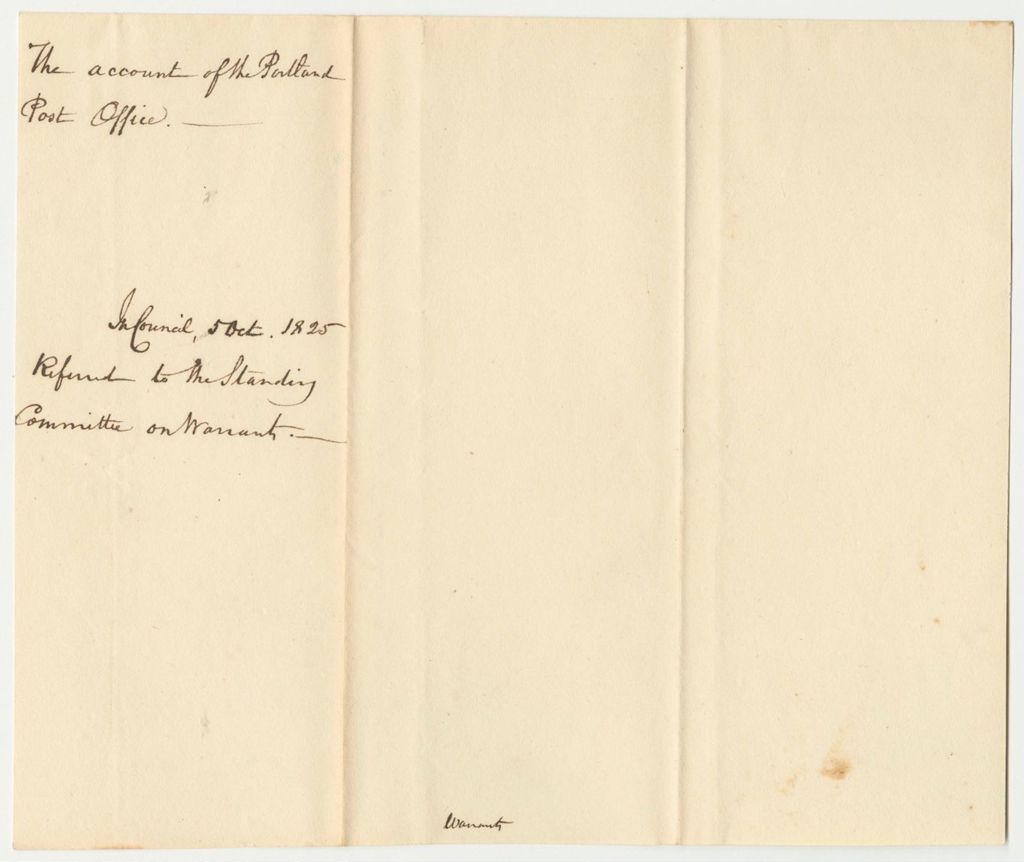 The account of the Portland
Post Office. —
In Council, 5 Oct. 1825
Referred to the Standing
Committee on Warrants. —
Warrants